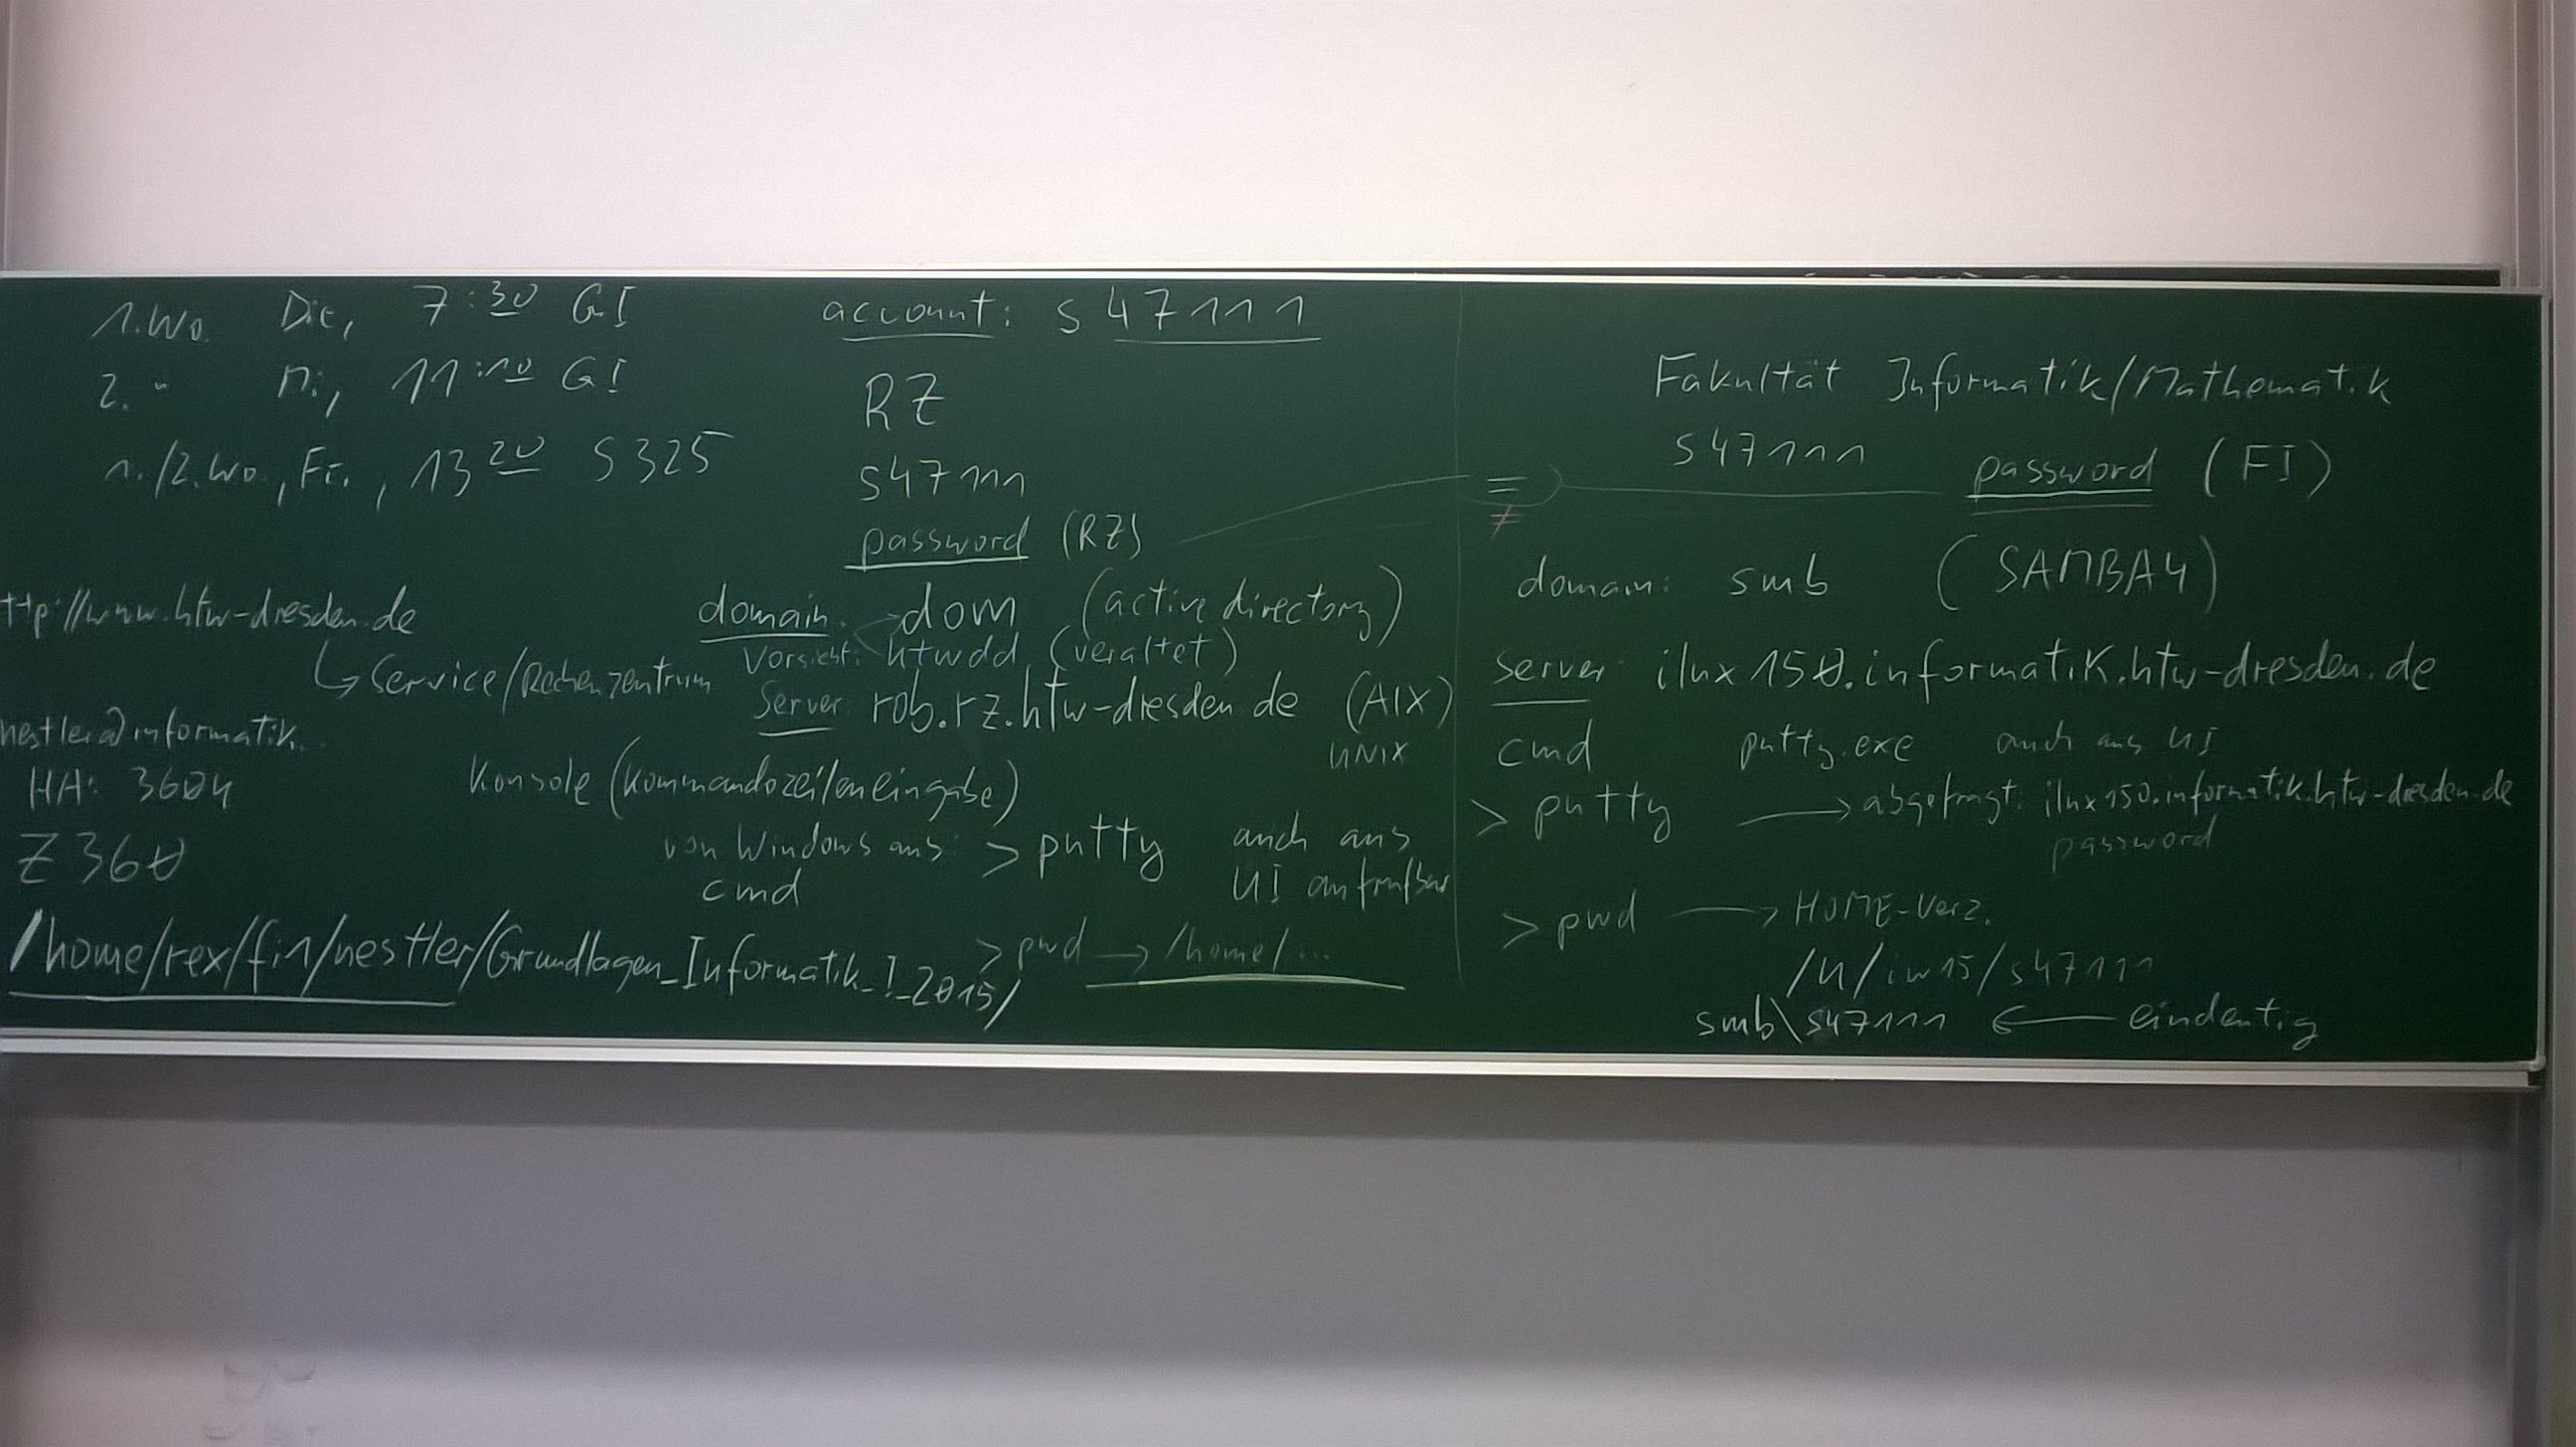 1. Wo. Die, 7:30 GI
2. " Mi, 11:10 GI
1./2. Wo., Fr., 13 20 S 325
ttp://www.htw-dresden.de
Service/Rechenzentrum
nestler@informatik.
HA: 3604
Z 360
/home/rex/fi1/nestler/Grundlagen_Informatik_I_2015/
account: s 47111
RZ
s47111
password (RZ)
domain: dom (active directory)
Vorsicht: htwdd (veraltet)
Server: rob.rz.htw-dresden.de (AIX)
UNIX
Konsole (Kommandozeileneingabe)
von Windows aus: > putty auch aus
cmd UI aufrufbar
> pwd → /home/...
=
≠
Fakultät Informatik/Mathematik
s47111
password (FI)
domain: smb (SAMBA4)
server: ilux150.informatik.htw-dresden.de
cmd putty.exe auch aus UI
> putty → abgefragt: ilux150.informatik.htw-dresden.de
password
> pwd → HOME-Verz.
/u/iw15/s47111
smb\s47111 ← eindeutig